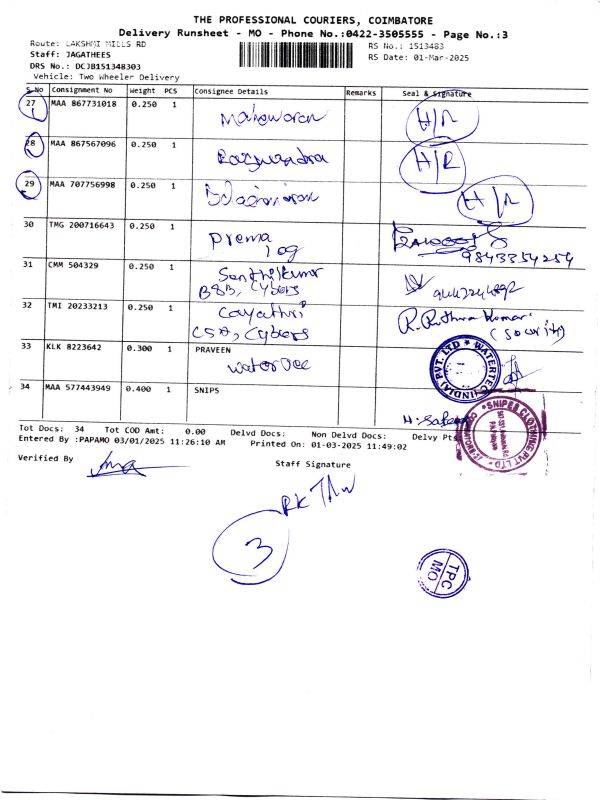 THE PROFESSIONAL COURIERS, COIMBATORE
Delivery Runsheet - MO - Phone No.:0422-3505555 - Page No.:3
Route: LAKSHMI MILLS RD
RS No.: 1513483
Staff: JAGATHEES
RS Date: 01-Mar-2025
DRS No.: DCJB151348303
Vehicle: Two Wheeler Delivery
S.No Consignment No Weight PCS Consignee Details Remarks Seal & Signature
27 MAA 867731018 0.250 1 H/R
28 MAA 867567096 0.250 1 H/R
29 MAA 707756998 0.250 1 H/R
30 TMG 200716643 0.250 1 Prema
log 9843354254
31 CMM 504329 0.250 1 Senthilkumar
BSB, Cybers
32 TMI 20233213 0.250 1 Gayathri R. Ruthra Kumar
CSA, Cybers (Socurity)
33 KLK 8223642 0.300 1 PRAVEEN
WATERTEC (INDIA) PVT. LTD
34 MAA 577443949 0.400 1 SNIPS
SNIPES CLOTHING PVT LTD
Tot Docs: 34 Tot COD Amt: 0.00 Delvd Docs: Non Delvd Docs: Delvy Pts:
Entered By :PAPAMO 03/01/2025 11:26:10 AM Printed On: 01-03-2025 11:49:02
Verified By
Staff Signature
3
TPC
MO